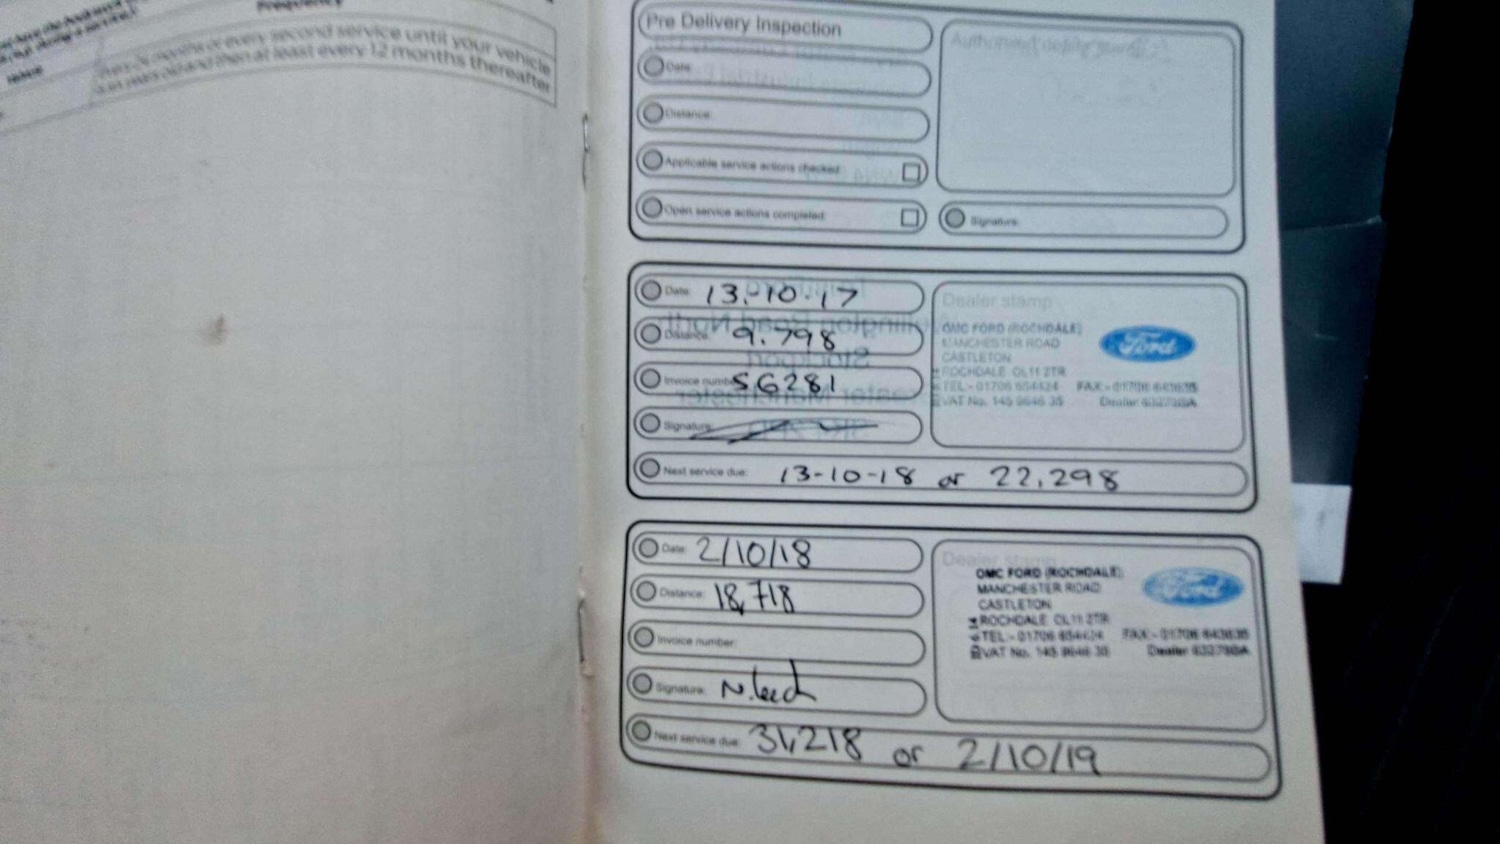 Frequency
months or every second service until your vehicle
years old and then at least every 12 months thereafter
Pre Delivery Inspection
Date:
Distance:
Applicable service actions checked:
Open service actions completed:
Signature:
Date: 13-10-17
Distance: 9.798
Invoice number: 56281
Signature:
Next service due: 13-10-18 or 22,298
Dealer stamp
OMC FORD (ROCHDALE)
MANCHESTER ROAD
CASTLETON
ROCHDALE OL11 2TR
TEL:- 01706 654424 FAX:-
VAT No. 145 9646 35 Dealer
Ford
Date: 2/10/18
Distance: 18,718
Invoice number:
Signature: N.leech
Next service due: 31,218 or 2/10/19
Dealer stamp
OMC FORD (ROCHDALE)
MANCHESTER ROAD
CASTLETON
ROCHDALE OL11 2TR
TEL:- 01706 654424 FAX:-
VAT No. 145 9646 35 Dealer
Ford